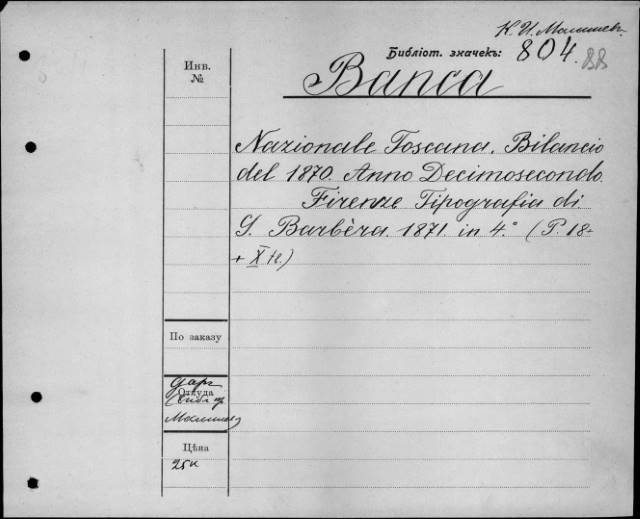 К. И. Малышев.
Библіот. значекъ: 804. 88
Инв.
№
Banca
Nazionale Toscana. Bilancio
del 1870. Anno Decimosecondo.
Firenze Tipografia di
G. Barbèra. 1871. in 4.° (P. 18-
+ X tt.)
По заказу
Даръ
Откуда
Малышева
Цѣна
25 к